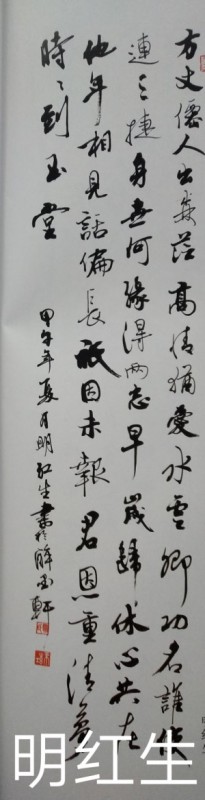 方丈僊人出渺茫高情猶愛水雲鄉功名誰使
連三捷身世何緣得兩忘早歲歸休心共在
他年相見話偏長祇因未報君恩重清夢
時〻到玉堂
甲午年夏月明红生書於軒
明红生